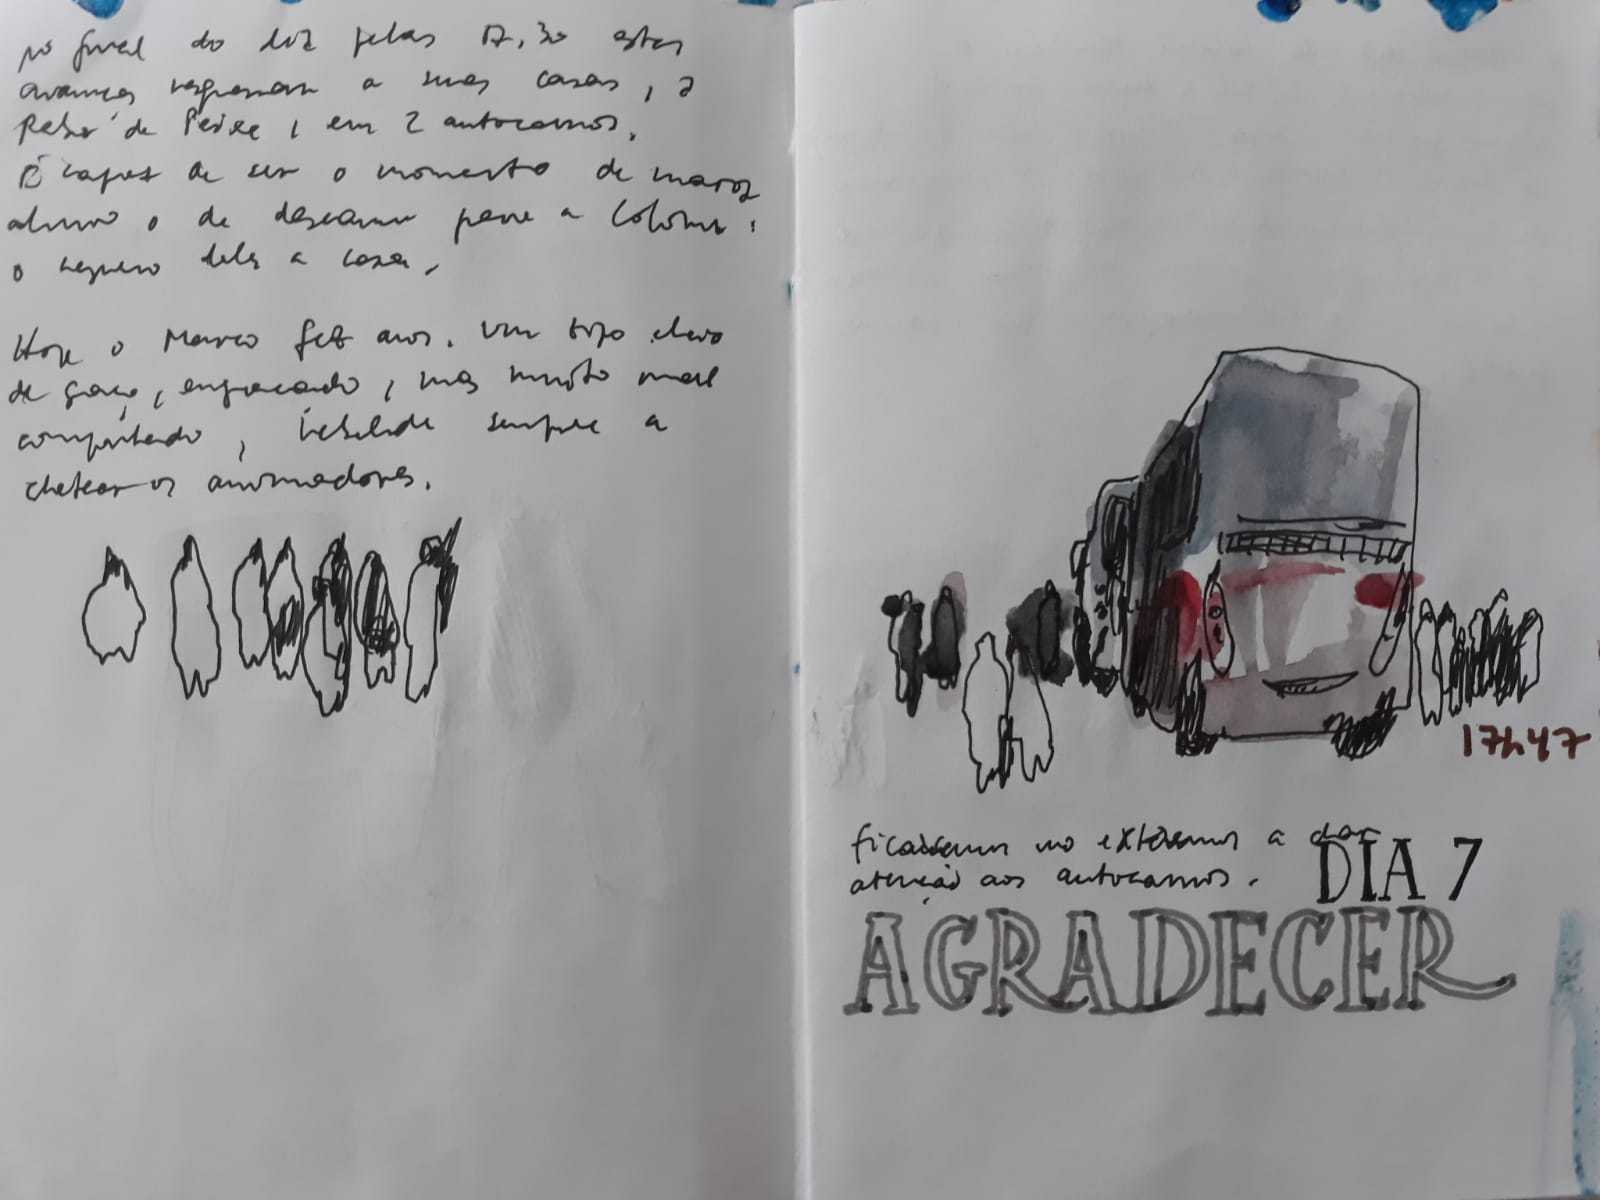 no final do dia pelas 17,30 estas
crianças regressam a suas casas, a
de Peixe, em 2 autocarros.
É capaz de ser o momento de maior
alívio e de descanso para a Colónia:
o regresso deles a casa.
Hoje o Marco fez anos. Um tipo cheio
de graça, engraçado, mas muito mal
comportado, rebelde sempre a
chatear os animadores.
17h47
ficaram no exterior a dar
atenção aos autocarros.
DIA 7
AGRADECER